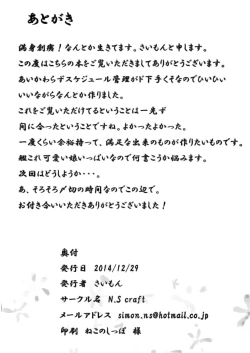 あとがき
満身創痍！なんとか生きてます。さいもんと申します。
この度はこちらの本をご覧いただきましてありがとうございます。
あいかわらずスケジュール管理がド下手くそなのでひいひい
いいながらなんとか作りました。
これをご覧いただけてるということは一先ず
間に合ったということですね。よかったよかった。
一度くらい余裕持って、満足な出来のものが作りたいものです。
艦これ可愛い娘いっぱいなので何書こうか悩みます。
次回はどうしようか・・・。
あ、そろそろ〆切の時間なのでこの辺で。
お付き合いいただきありがとうございました！
奥付
発行日 2014/12/29
発行者 さいもん
サークル名 N.S craft
メールアドレス simon.ns@hotmail.co.jp
印刷 ねこのしっぽ 様